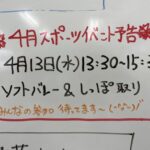 4月スポーツイベント予告
4月13日(水)13:30~15:
ソフトバレー&しっぽ取り
みんなの参加 待ってます~